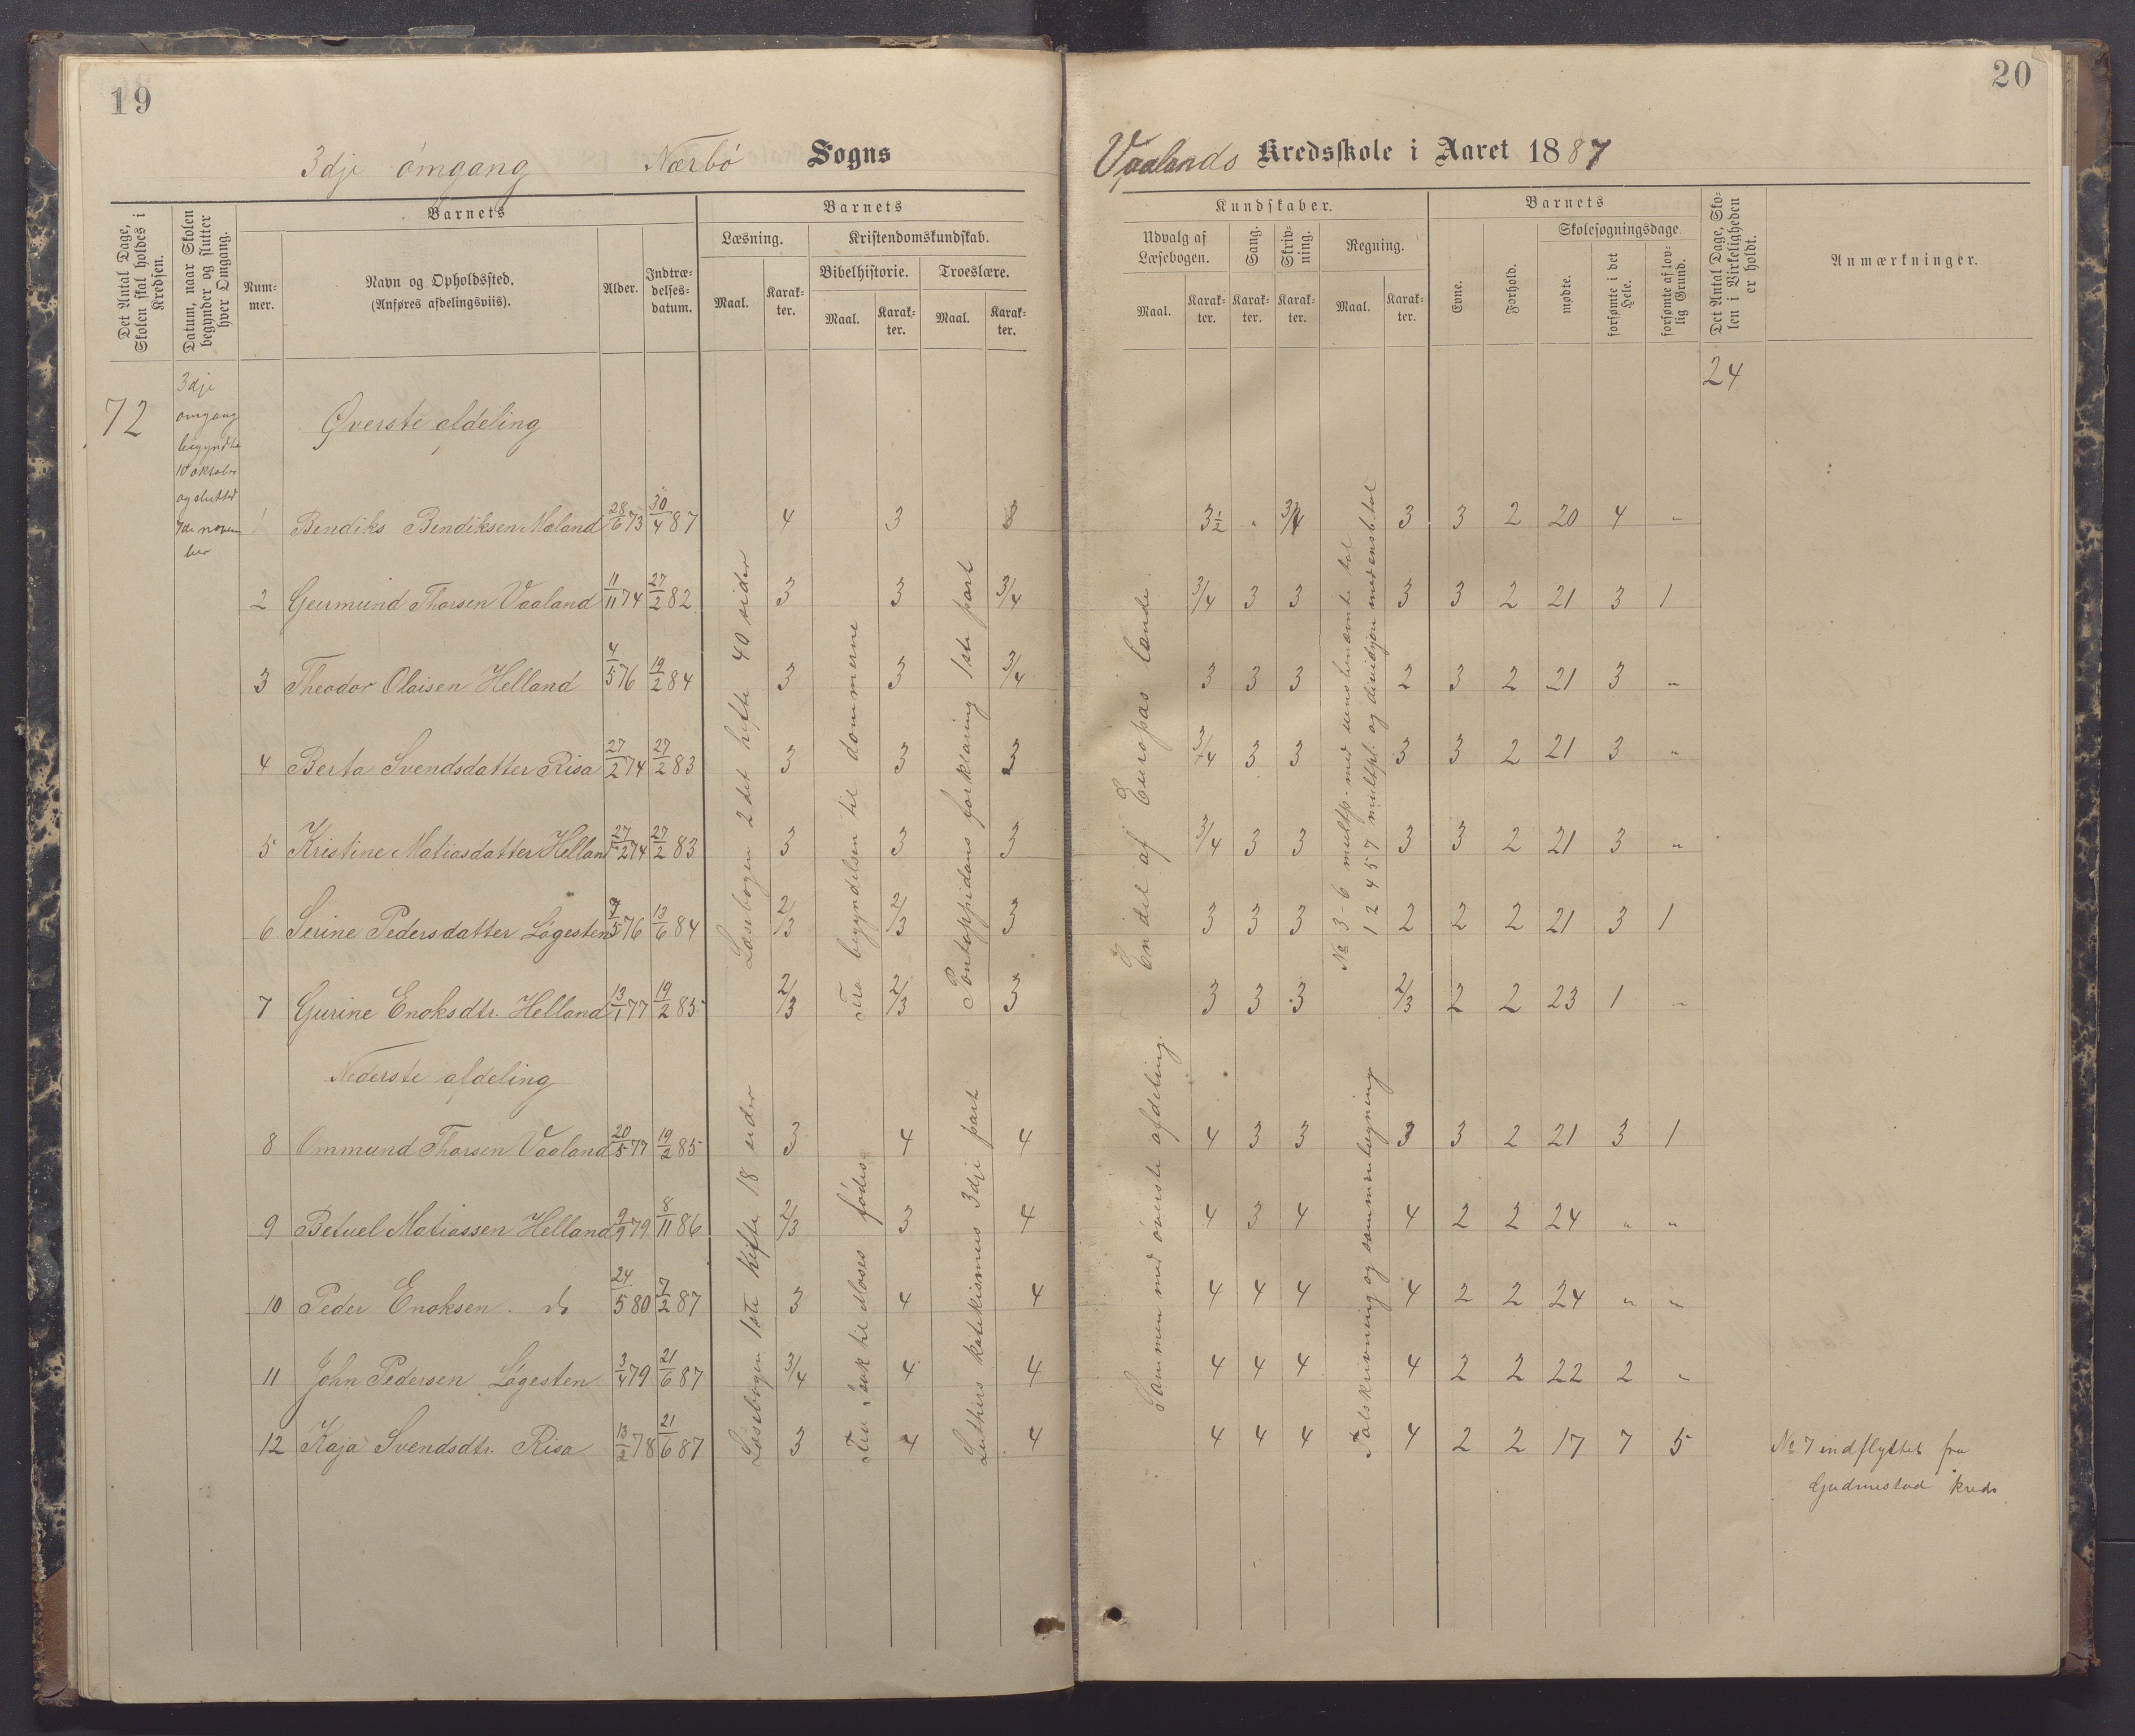 19
3dje omgang Nærbö Sogns
Det Antal Dage, Skolen skal holdes i Kredsen.
Datum, naar Skolen begynder og slutter hver Omgang.
Barnets
Nummer.
Navn og Opholdssted.
(Anføres afdelingsviis).
Alder.
Indtrædelsesdatum.
Barnets
Læsning.
Kristendomskundskab.
Bibelhistorie.
Troeslære.
Maal.
Karakter.
Maal.
Karakter.
Maal.
Karakter.
72
3dje
omgang
begyndte
10 oktober
og slutted
7de novem
ber
Øverste afdeling
1 Bendiks Bendiksen Maland 28/6 73 30/4 87 4 3 3
2 Geurmund Thorsen Vaaland 11/11 74 27/2 82 3 3 3/4
3 Theodor Olaisen Helland 4/5 76 19/2 84 3 3 3/4
4 Berta Svendsdatter Risa 27/2 74 27/2 83 3 3 3
5 Kristine Matiasdatter Helland 27/2 74 27/2 83 3 3 3
6 Serine Pedersdatter Lögesten 9/5 76 13/6 84 2/3 2/3 3
7 Gurine Enoksdtr. Helland 13/1 77 19/2 85 2/3 2/3 3
Læsebogen 2det hefte 40 sider
Fra begyndelsen til dommerne
Pontoppidans forklaring 1ste part
Nederste afdeling
8 Ommund Thorsen Vaaland 20/5 77 19/2 85 3 4 4
9 Betuel Matiassen Helland 9/9 79 8/11 86 2/3 3 4
10 Peder Enoksen do 24/5 80 7/2 87 3 4 4
11 John Pedersen Lögesten 3/4 79 21/6 87 3/4 4 4
12 Kaja Svendsdtr. Risa 13/2 78 21/6 87 3 4 4
Læsebogen 1ste hefte 18 sider
Fra Isak til Moses födes
Luthers katekismus 3dje part
20
Vaalands Kredsskole i Aaret 1887
Kundskaber.
Udvalg af Læsebogen.
Sang.
Skrivning.
Regning.
Maal.
Karakter.
Karakter.
Karakter.
Maal.
Karakter.
Barnets
Evne.
Forhold.
Skolesøgningsdage.
mødte.
forsømte i det Hele.
forsømte af lovlig Grund.
Det Antal Dage, Skolen i Virkeligheden er holdt.
Anmærkninger.
24
3 1/2 " 3/4 3 3 2 20 4 "
3/4 3 3 3 3 2 21 3 1
3 3 3 2 3 2 21 3 "
3/4 3 3 3 3 2 21 3 "
3/4 3 3 3 3 2 21 3 "
3 3 3 2 2 2 21 3 1
3 3 3 2/3 2 2 23 1 "
En del af Europas lande
No 3-6 multp. med uensbenævnte tal
1 2 4 5 7 multpl. og divisjon med ensb. tal
4 3 3 3 3 2 21 3 1
4 3 4 4 2 2 24 " "
4 4 4 4 2 2 24 " "
4 4 4 4 2 2 22 2 "
4 4 4 4 2 2 17 7 5
Sammen med överste afdeling.
Talskrivning og sammenlægning
No 7 indflyttet fra
Gudmestad kreds